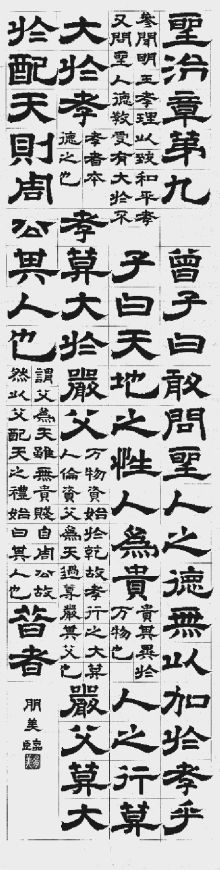 聖治章第九　曾子曰敢問聖人之德無以加於孝乎
參聞明王孝理以致和平孝
又問聖人德教更有大於不
子曰天地之性人為貴
貴其異於
萬物也
人之行莫
大於孝
孝者本
德之也
孝莫大於嚴父
萬物資始於乾故孝行之大莫
人倫資父為天過尊嚴其父也
嚴父莫大
於配天則周公其人也
謂父為天雖無貴賤自周公故
然以父配天之禮始曰其人也
昔者
朋美臨